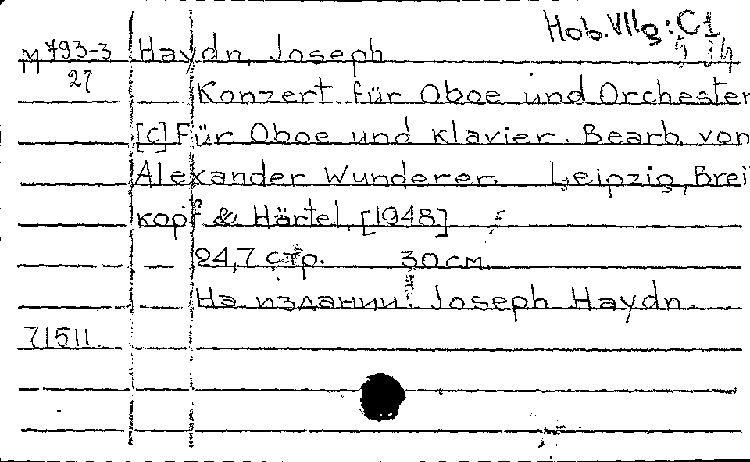 Hob. VIIg: C1
М 793-3 Haydn, Joseph
27
Konzert für Oboe und Orchester
[C] Für Oboe und Klavier. Bearb. von
Alexander Wunderer. Leipzig, Brei
kopf & Härtel, [1948]
24,7 стр. 30 см.
На издании: Joseph Haydn.
71511.